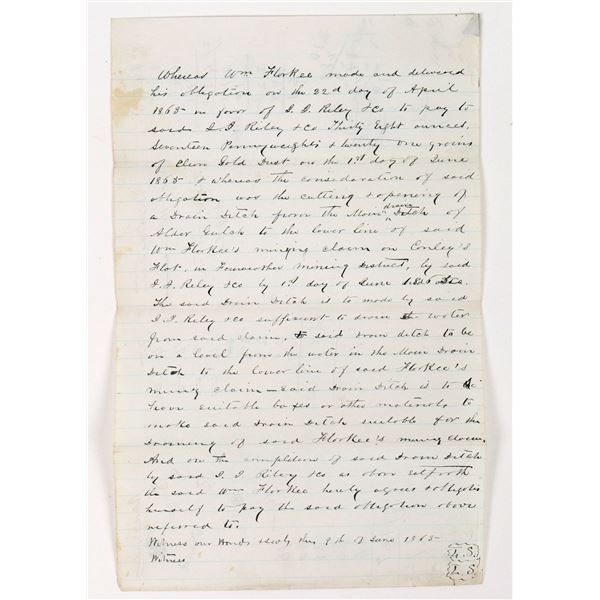 Whereas Wm Florkee made and delivered
his obligation on the 22d day of April
1865 in favor of I. I. Riley & Co to pay to
said I. I. Riley & Co Thirty Eight ounces,
Seventeen Pennyweights & twenty one grains
of Clean Gold Dust on the 1st day of June
1865 & whereas the consideration of said
obligation was the cutting & opening of
a Drain Ditch from the Main drain Ditch of
Alder Gulch to the lower line of said
Wm Florkee's mining claim on Conley's
Flat, in Fairweather Mining District, by said
I. I. Riley & Co by 1st day of June 1865
The said Drain Ditch is to made by said
I. I. Riley & Co sufficient to drain the water
from said claim, said drain ditch to be
on a level from the water in the Main Drain
Ditch to the lower line of said Florkee's
mining claim — Said Drain Ditch is to
have suitable boxes or other materials to
make said Drain Ditch suitable for the
Draining of said Florkee's mining claim.
And on the completion of said Drain Ditch
by said I. I. Riley & Co as above set forth
the said Wm Florkee hereby agrees & obligates
himself to pay the said obligation above
referred to.
Witness our Hands & seals this 9th of June 1865
Witness
L. S.
L. S.